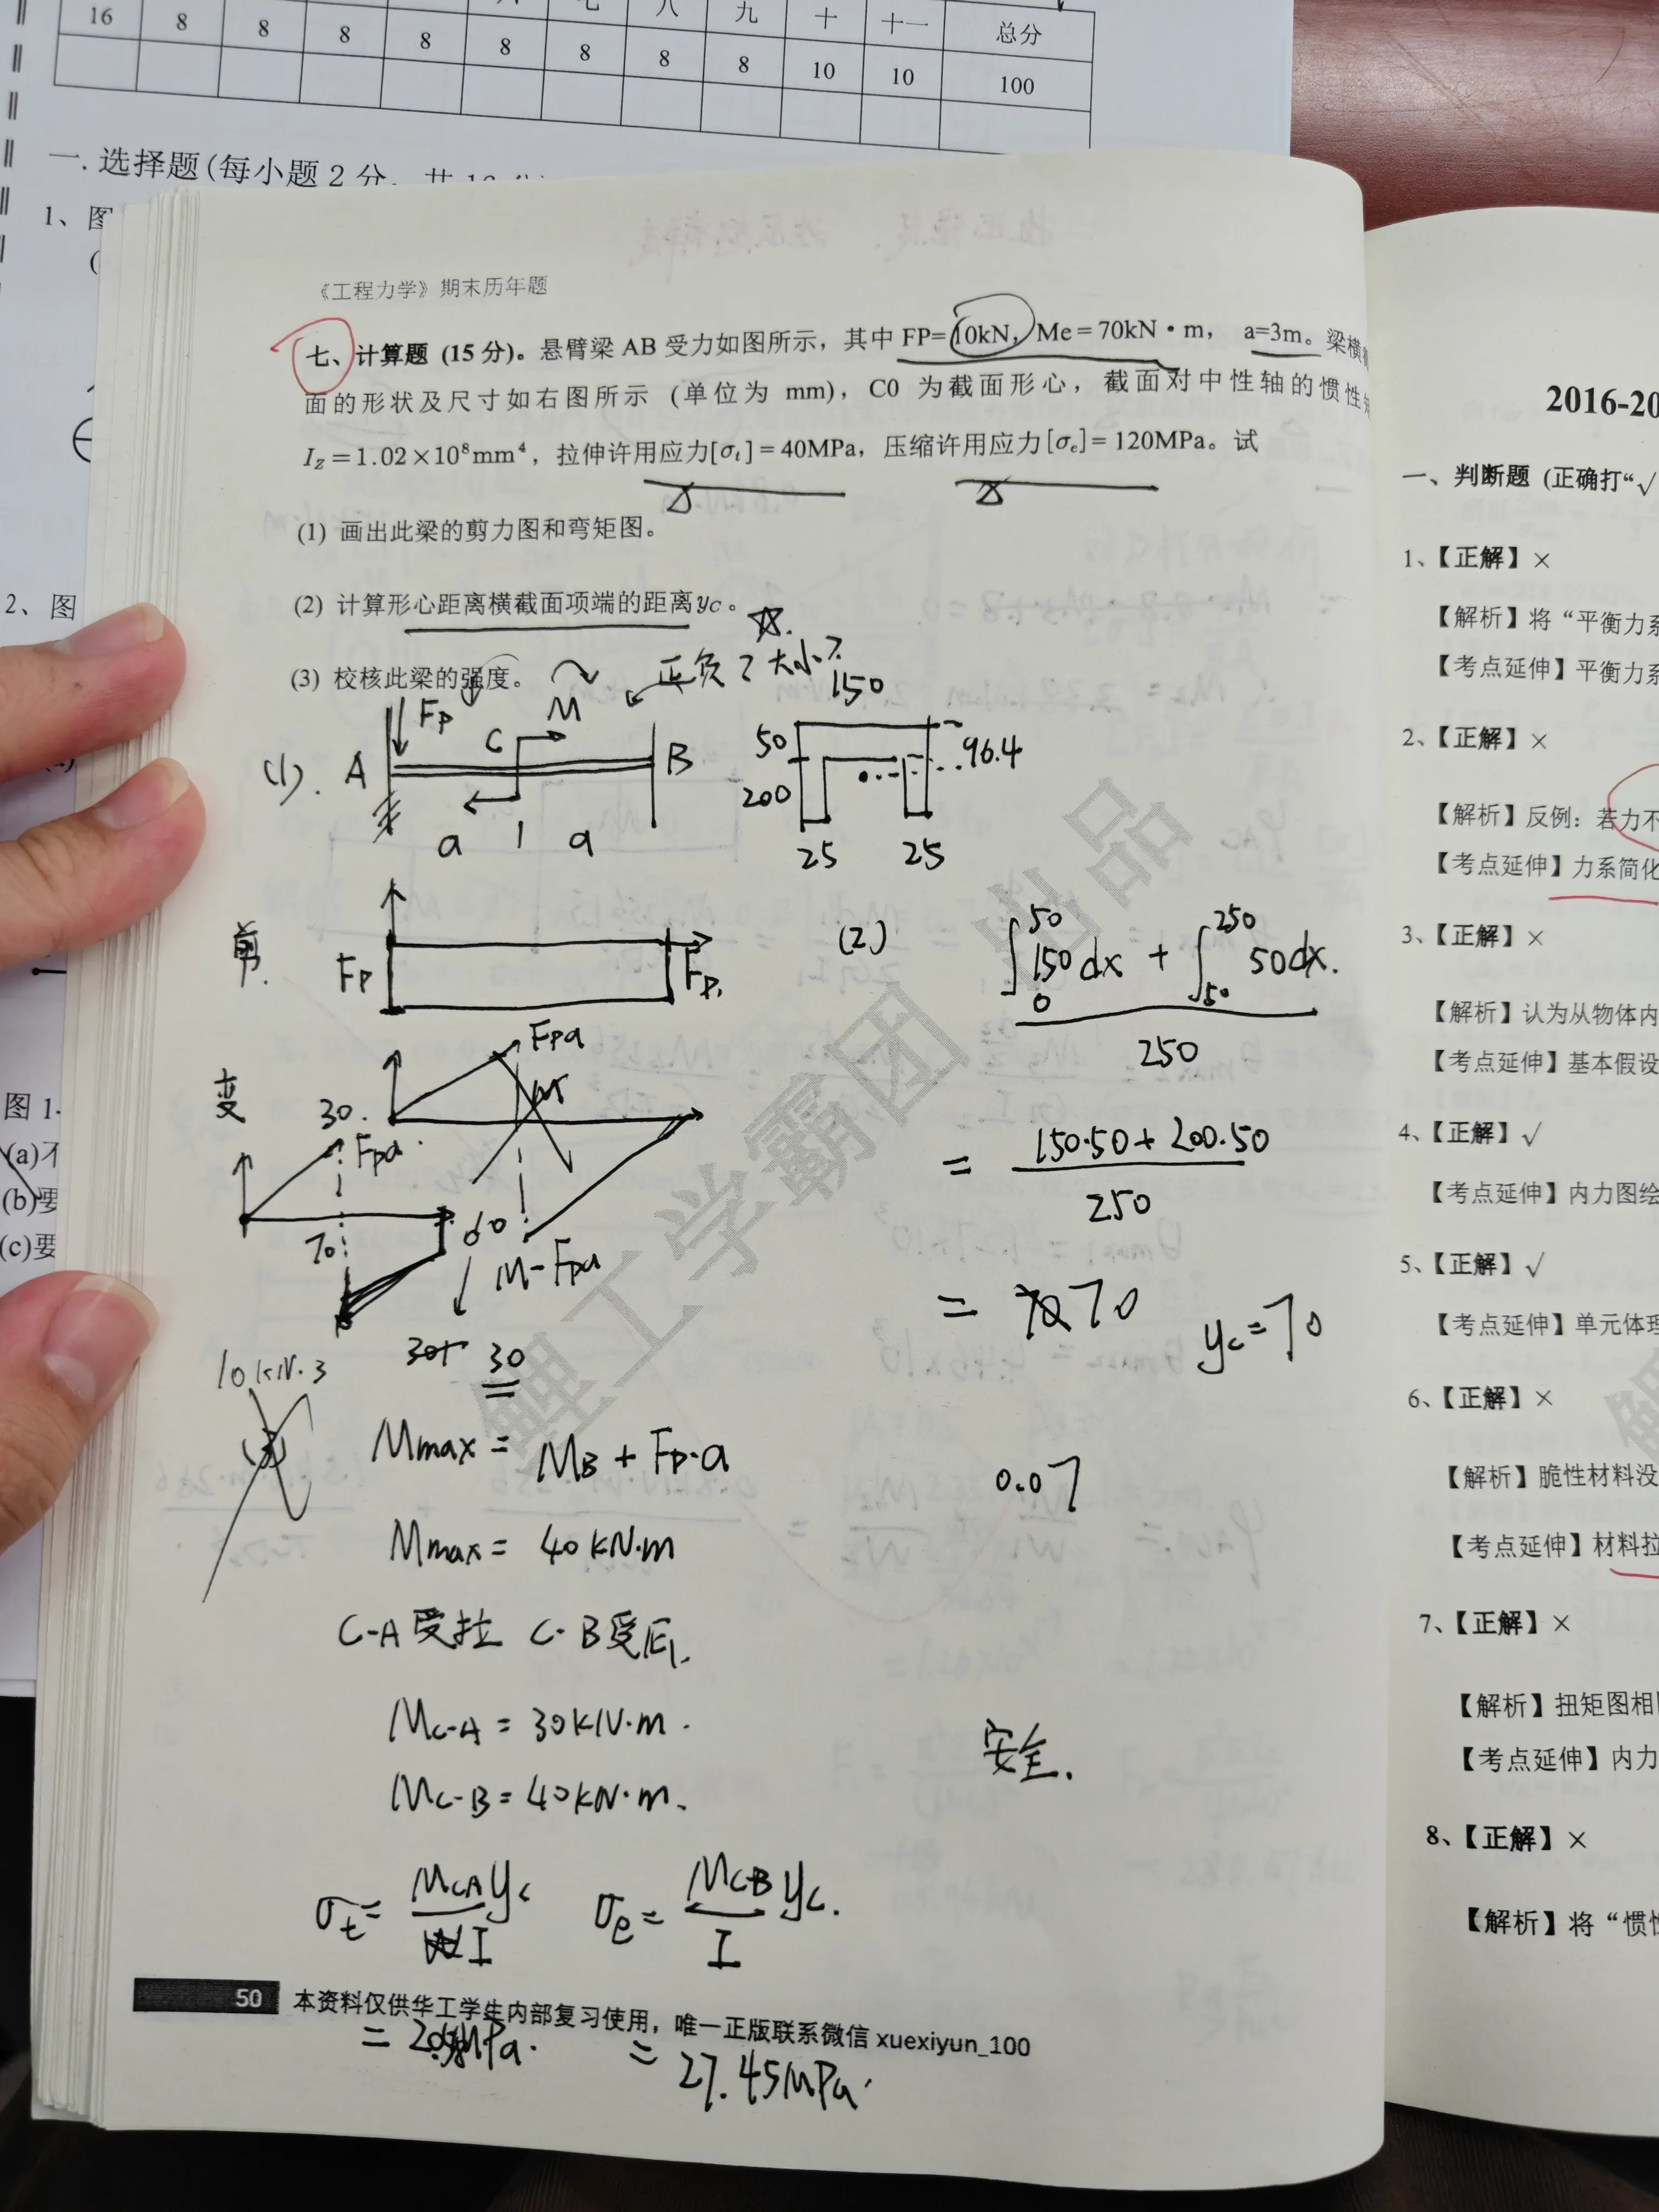 七 八 九 十 十一 总分
16 8 8 8 8 8 8 8 10 10 100
一. 选择题(每小题2分,共
1、图
(
2、图
图1.
(a)不
(b)要
(c)要
《工程力学》期末历年题
七、计算题 (15 分)。悬臂梁 AB 受力如图所示，其中 FP=10kN，Me=70kN·m， a=3m。梁横
面的形状及尺寸如右图所示 (单位为 mm)，C0 为截面形心，截面对中性轴的惯性
Iz=1.02×10⁸mm⁴，拉伸许用应力[σt]=40MPa，压缩许用应力[σe]=120MPa。试
(1) 画出此梁的剪力图和弯矩图。
(2) 计算形心距离横截面项端的距离yc。
(3) 校核此梁的强度。
正负？大小？
(1). A Fp C M B
a a
150
50 96.4
200
25 25
剪. Fp Fp.
变 Fpa M
30. Fpa.
70 60 M-Fpa
30+ 30
10kN·3
Mmax = MB + Fp·a
Mmax = 40kN·m
C-A受拉 C-B受压.
MC-A = 30kN·m.
MC-B = 40kN·m.
σt = MCA yc / I σe = MCB yc. / I
= 27.45MPa.
(2) ∫₀⁵⁰ 150dx + ∫₅₀²⁵⁰ 50dx.
250
= 150·50 + 200·50
250
= 70 yc=70
0.07
安全.
鲤工学霸团 出品
50 本资料仅供华工学生内部复习使用，唯一正版联系微信 xuexiyun_100
2016-20
一、判断题 (正确打“√
1、【正解】×
【解析】将“平衡力系
【考点延伸】平衡力系
2、【正解】×
【解析】反例：若力不
【考点延伸】力系简化
3、【正解】×
【解析】认为从物体内
【考点延伸】基本假设
4、【正解】√
【考点延伸】内力图绘
5、【正解】√
【考点延伸】单元体理
6、【正解】×
【解析】脆性材料没
【考点延伸】材料拉
7、【正解】×
【解析】扭矩图相
【考点延伸】内力
8、【正解】×
【解析】将“惯性